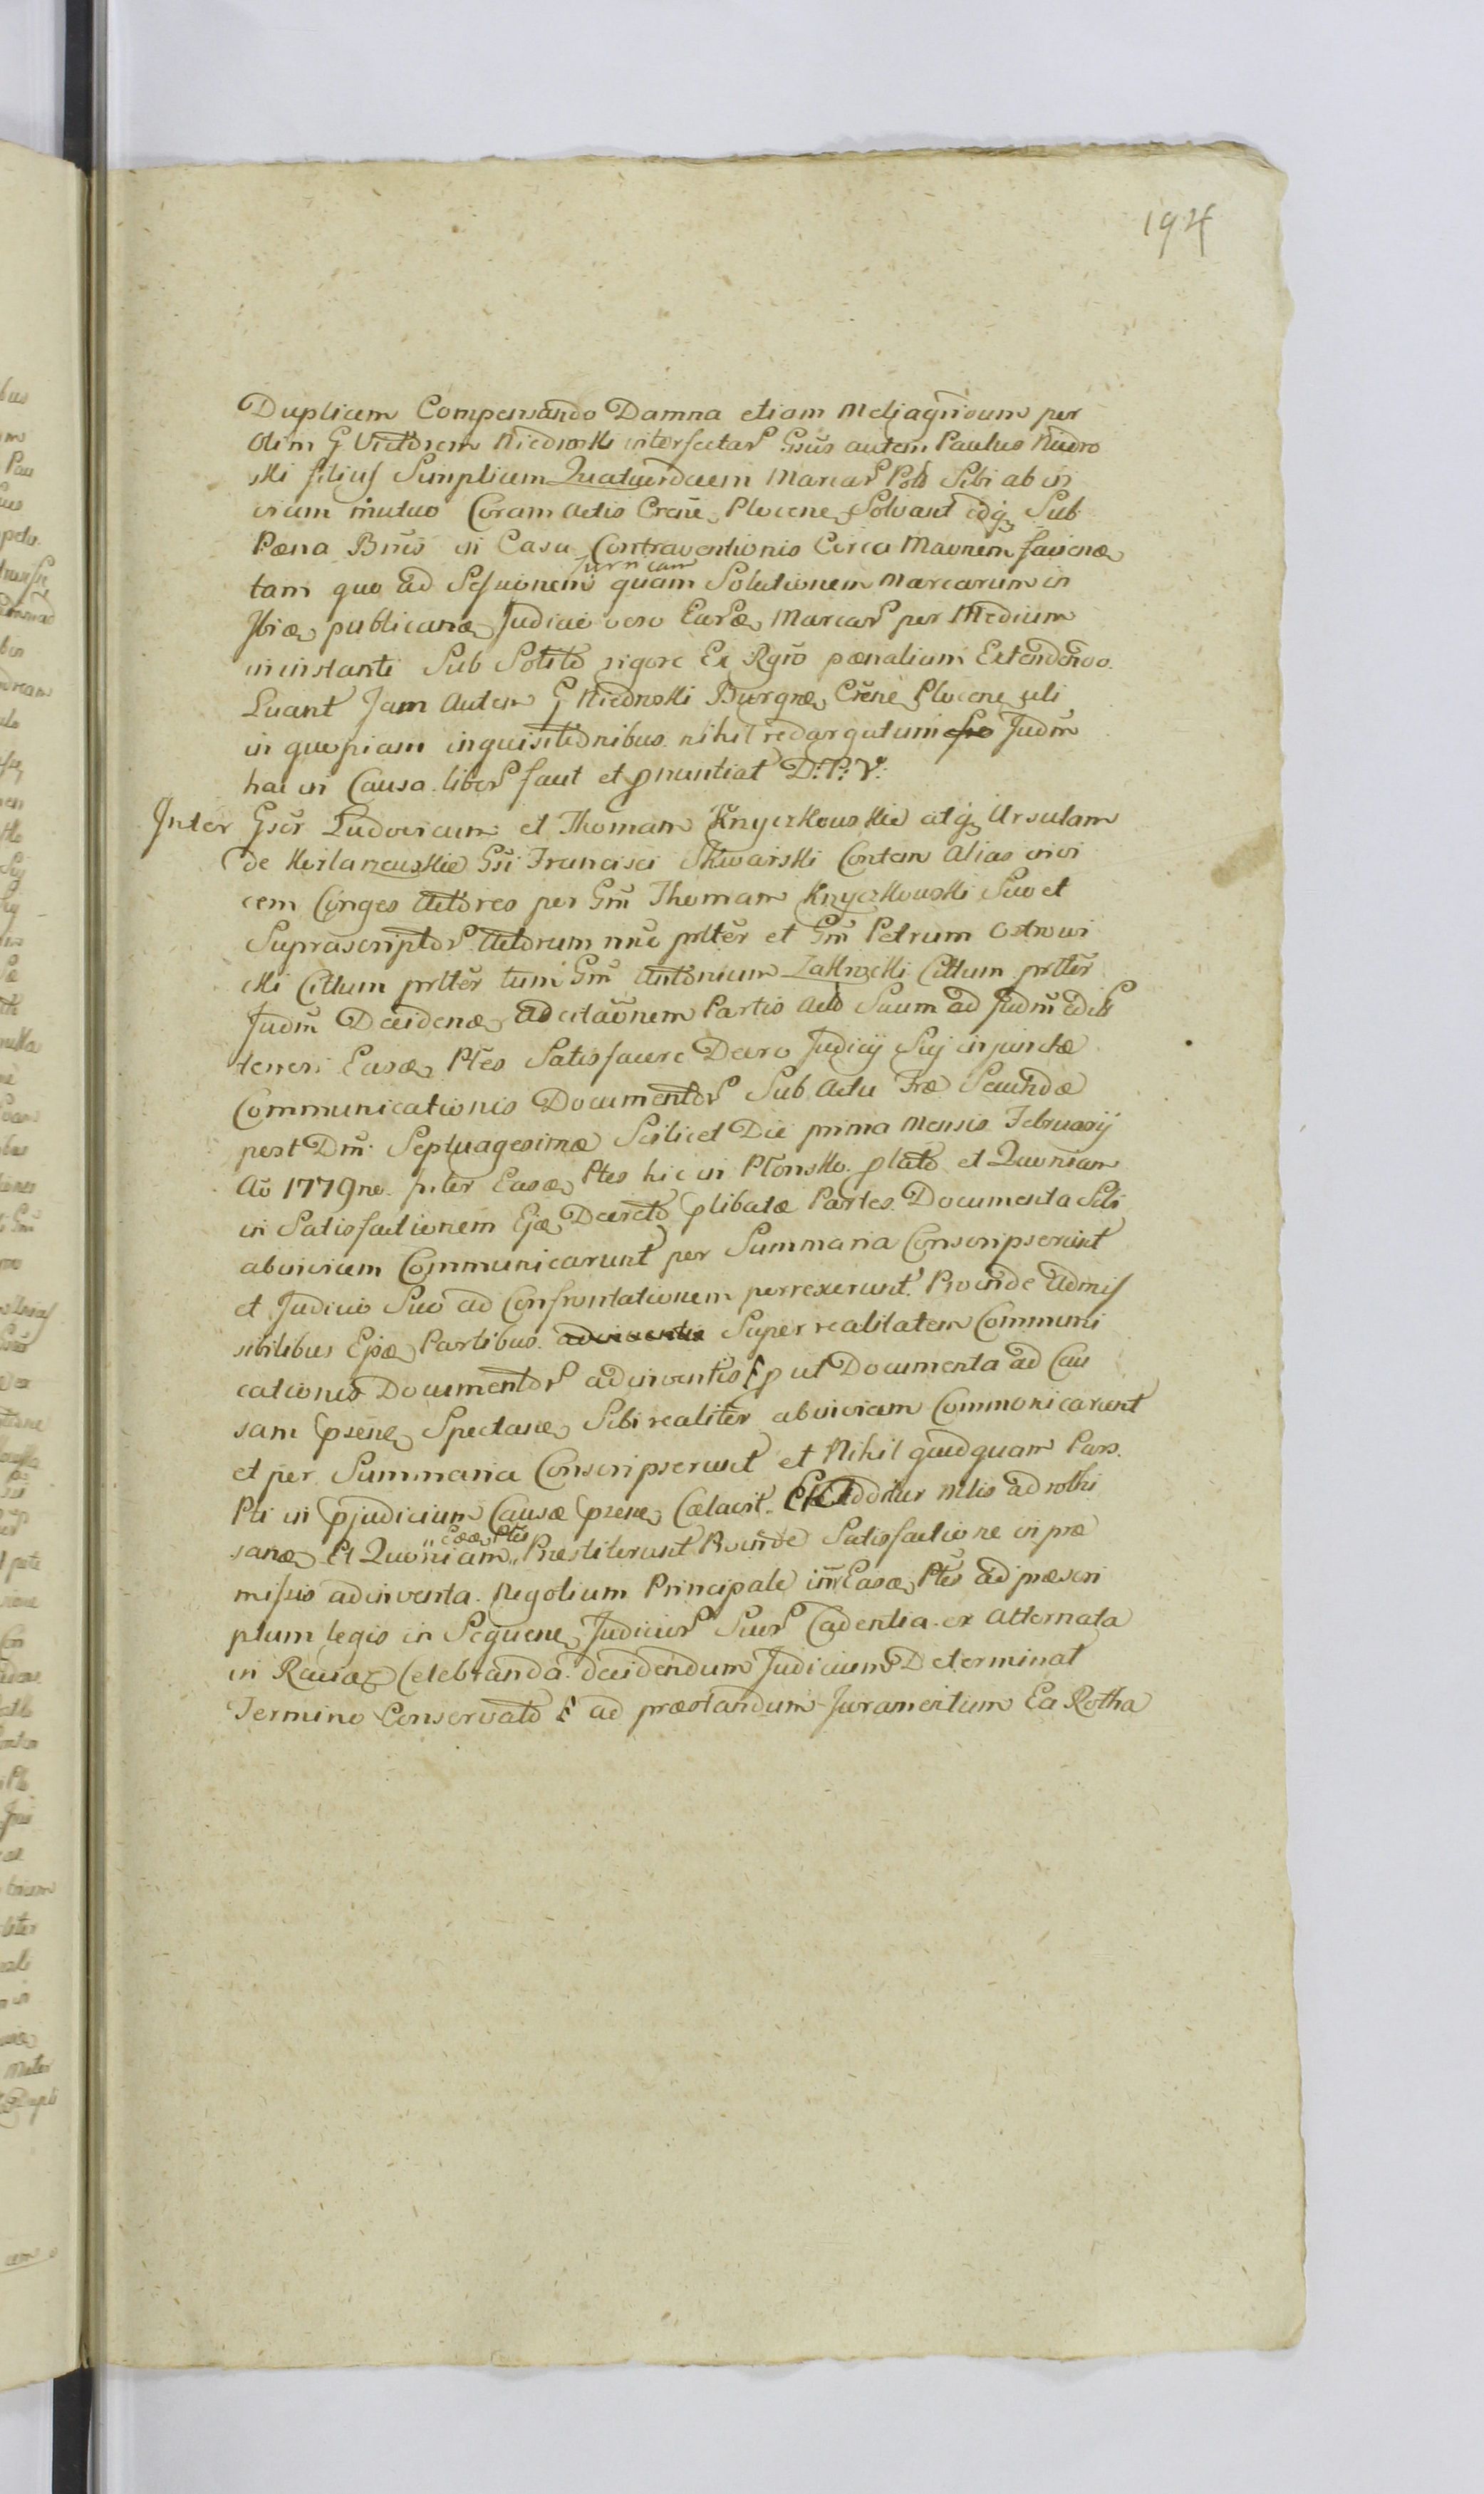 194
Duplicem Compensando Damna etiam per
Olim G Victorem Niedroski Gsūs autem Paulus Niedro
ski filius Simplicem Quatuordecim Marcar Pol Sibi ab in
vicem mutuo Coram Actis Crēne Plocene Solvant idq Sub
Pæna Bnīs in Casu Contraventionis Circa
tam quo ad Sessionem Turricam quam Solutionem Marcarum in
publicanæ Judicii vero Marcar per Medium
in instanti Sub Solito rigore Ex Rgrō pænalium Extendendo
Luant Jam Autem G Niedroski Burgræ Crēne Plocene uli
in quopiam inquisitionibus nihil redargutum Judm̄
hac in Causa liber faut et pnuntiat D: P: V:
Inter Gser Ludovicum et Thomam Knyczkouskie atq Ursulam
de Gsī Francisci Skwarski Contem alias vivi
cem Cjnges Actores per Gm̄ Thomam Knyczkouski Suo et
Suprascriptor Actorum nn̄e prltēr et Gm̄ Petrum Ostrowi
cki Citlum prltēr tum Gm̄ Antonium Zakrzecki Citlum prltēr
Judm̄ Decidenæ ad citaōnem Partis Act Suum ad Judm̄
teneri Easæ Ptēs Satisfacere Decro Judicij Sui injunctæ
Communicationis Documentor Sub Actu Fræ Secundæ
post Dm̄ Septuagesimæ Scilicet Die prima Mensis Februarij
Aō 1779ne. Inter Easæ Ptes hic in Płonsko plato et Quoniam
in Satisfactionem Ejæ Decreto plibatæ Partes Documenta Sibi
abinvicem Communicarunt per Summaria Conscripserunt
et Judicio Suo ad Confrontationem porrexerunt Proinde admis
sibilibus Partibus Super realitatem Communi
cationis Documentor adinventis put Documenta ad Cau
sam psēne Spectane Sibi realiter abinvicem Communicarunt
et per Summaria Conscripserunt et Nihil quidquam Pars
Pti in pjudicium Causæ psene Cælavit ad rothi
sanæ Et Quoniam „Eææ Ptēs„ Præstiterunt Proinde Satisfactione in præ
missis adinventa Negotium Principale intr Easæ Ptēs ad præscri
ptum legis in Sequene Judicior Suor Cadentia ex alternata
in Raciaz Celebranda decidendum Judicium Determinat
Termino Conservato ad præstandum Juramentum Ea Rotha